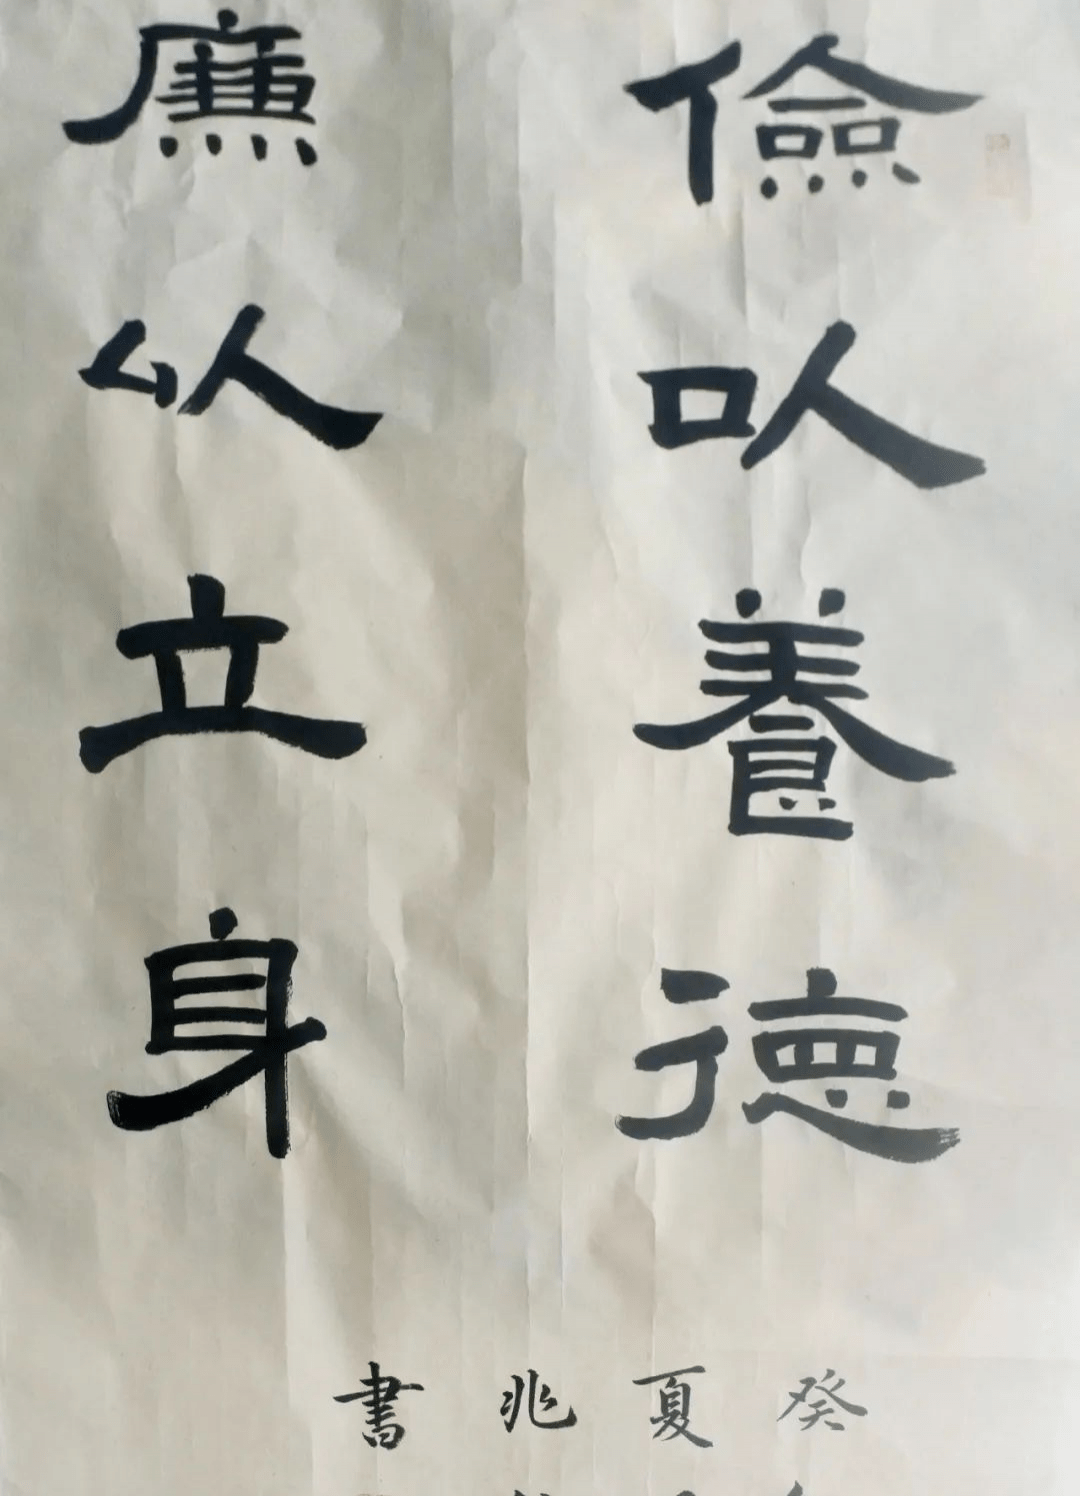 儉以養德
廉以立身
癸
夏
兆
書